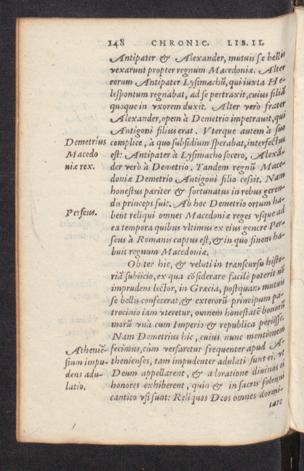 148 CHRONIC. LIB. II.
Antipater & Alexander, mutuis se bellis
vexarunt propter regnum Macedoniæ. Alter
eorum Antipater Lysimachū, qui iuxta He-
lispontum regnabat, ad se pertraxit, cuius filiā
quoque in vxorem duxit. Alter verò frater
Alexander, opem à Demetrio impetrauit, qui
Antigoni filius erat. Vterque autem à suo
Demetrius
Macedo
niæ rex.
complice, à quo subsidium sperabat, interfectus
est: Antipater à Lysimacho socero, Alexā-
der verò à Demetrio. Tandem regnū Mace-
doniæ Demetrio Antigoni filio cessit. Nam
honestus pariter & fortunatus in rebus geren-
du princeps fuit. Ab hoc Demetrio ortum ha-
Perseus.
bent reliqui omnes Macedoniæ reges vsque ad
ea tempora quibus vltimus ex eius genere Per-
seus à Romanis captus est, & in quo finem ha-
buit regnum Macedoniæ.
Obiter hic, & veluti in transcursu histo-
riā subiicio, ex qua cōsiderare facilè poterit nō
imprudens lector, in Græcia, postquam mutuis
se bellis confecerat, & exterorū principum pa-
trocinio iam vteretur, omnem honestatē bonorū
morū vnà cum Imperio & republica periisse.
Nam Demetrius hic, cuius nunc mentionem
Atheniē-
sium impu-
dens adu-
latio.
fecimus, cùm versaretur frequenter apud A-
thenienses, tam impudenter adulati sunt ei, vt
Deum appellarent, & adoratione diuinos ei
honores exhiberent, quin & in sacris solenni
cantico vsi sunt: Reliquos Deos omnes dormi-